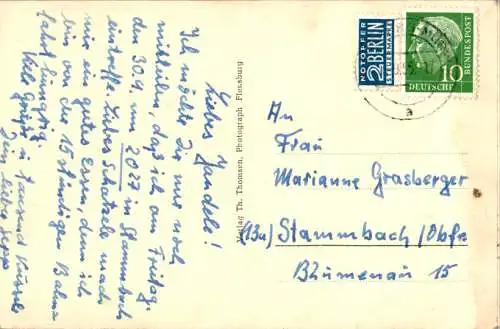 Liebes Mandele!
Ich möchte Dir nur noch
mitteilen, daß ich am Freitag,
den 30.9. um 2027 in Stammbach
eintreffe. Liebes Schatzele mach
mir ein gutes Essen, denn ich
bin von der 15 stündigen Bahn-
fahrt hungrig.
Viele Grüße u. tausend Küsse
Dein lieber Sepp
Verlag Th. Thomsen, Photograph, Flensburg
NOTOPFER
2 BERLIN
STEUERMARKE
10
DEUTSCHE
BUNDESPOST
a
An
Frau
Marianne Grasberger
(13a) Stammbach/Obfr.
Blumenau 15